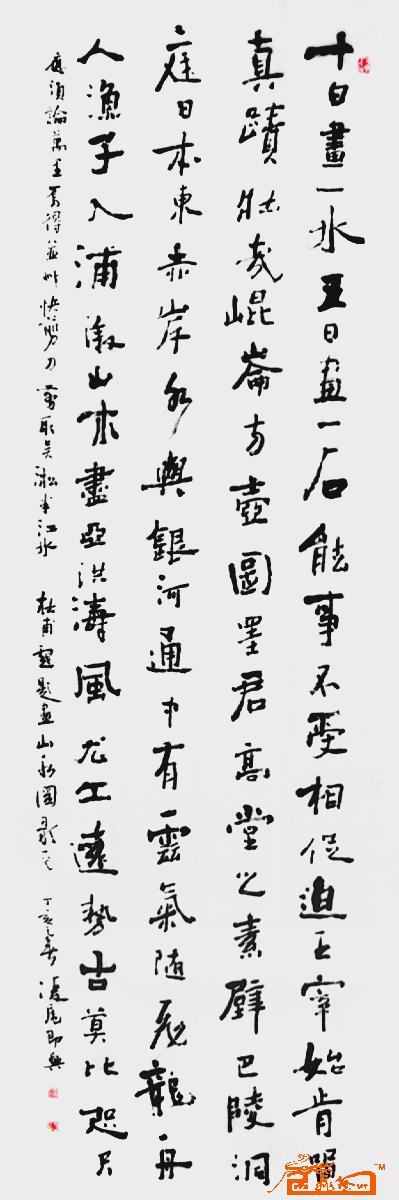 十日畫一水五日畫一石能事不受相促迫王宰始肯留
真蹟壯哉崐崙方壺圖罣君高堂之素壁巴陵洞
庭日本東赤岸水與銀河通中有雲氣隨飛龍舟
人漁子入浦漵山木盡亞洪濤風尤工遠勢古莫比咫尺
應須論萬里焉得并州快剪刀剪取吳淞半江水 杜甫戲題畫山水圖歌 丁亥 即興